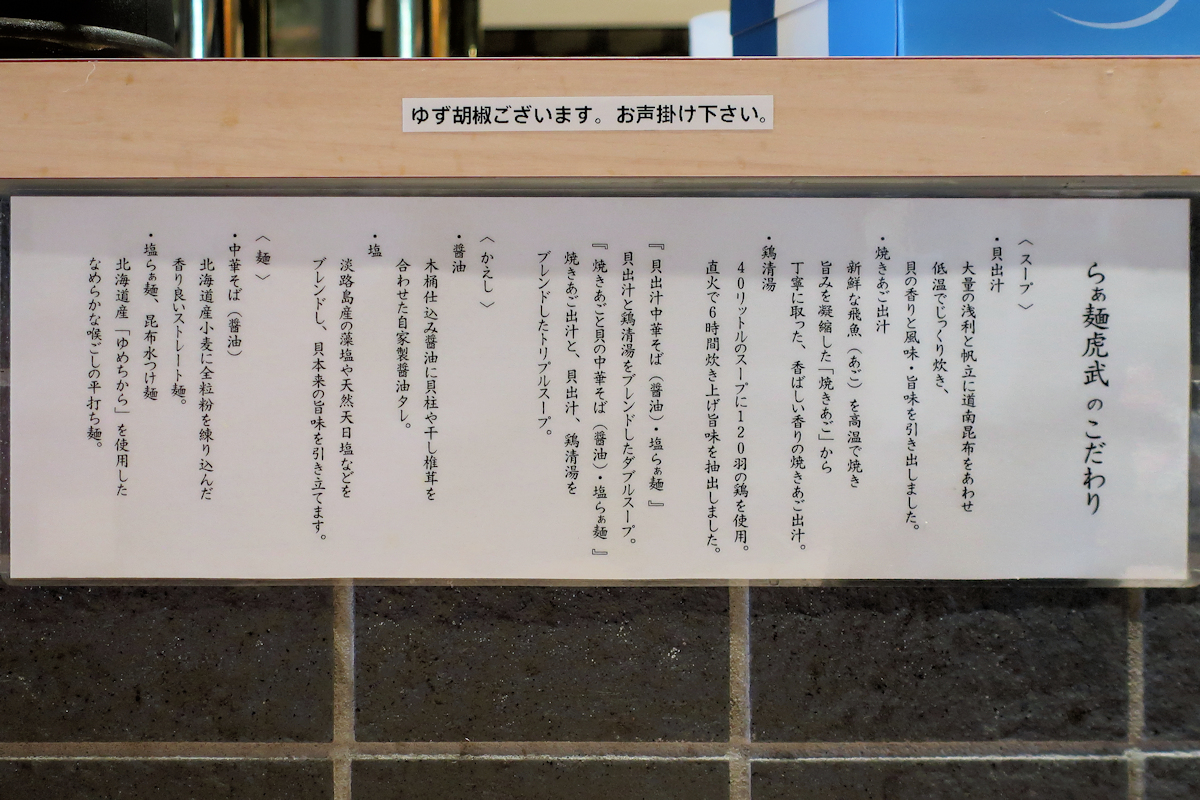 ゆず胡椒ございます。お声掛け下さい。
らぁ麺虎武のこだわり
〈スープ〉
・貝出汁
大量の浅利と帆立に道南昆布をあわせ
低温でじっくり炊き、
貝の香りと風味・旨味を引き出しました。
・焼きあご出汁
新鮮な飛魚（あご）を高温で焼き
旨みを凝縮した「焼きあご」から
丁寧に取った、香ばしい香りの焼きあご出汁。
・鶏清湯
40リットルのスープに120羽の鶏を使用。
直火で6時間炊き上げ旨味を抽出しました。
『貝出汁中華そば（醤油）・塩らぁ麺』
貝出汁と鶏清湯をブレンドしたダブルスープ。
『焼きあごと貝の中華そば（醤油）・塩らぁ麺』
焼きあご出汁と、貝出汁、鶏清湯を
ブレンドしたトリプルスープ。
〈かえし〉
・醤油
木桶仕込み醤油に貝柱や干し椎茸を
合わせた自家製醤油タレ。
・塩
淡路島産の藻塩や天然天日塩などを
ブレンドし、貝本来の旨味を引き立てます。
〈麺〉
・中華そば（醤油）
北海道産小麦に全粒粉を練り込んだ
香り良いストレート麺。
・塩らぁ麺、昆布水つけ麺
北海道産「ゆめちから」を使用した
なめらかな喉ごしの平打ち麺。